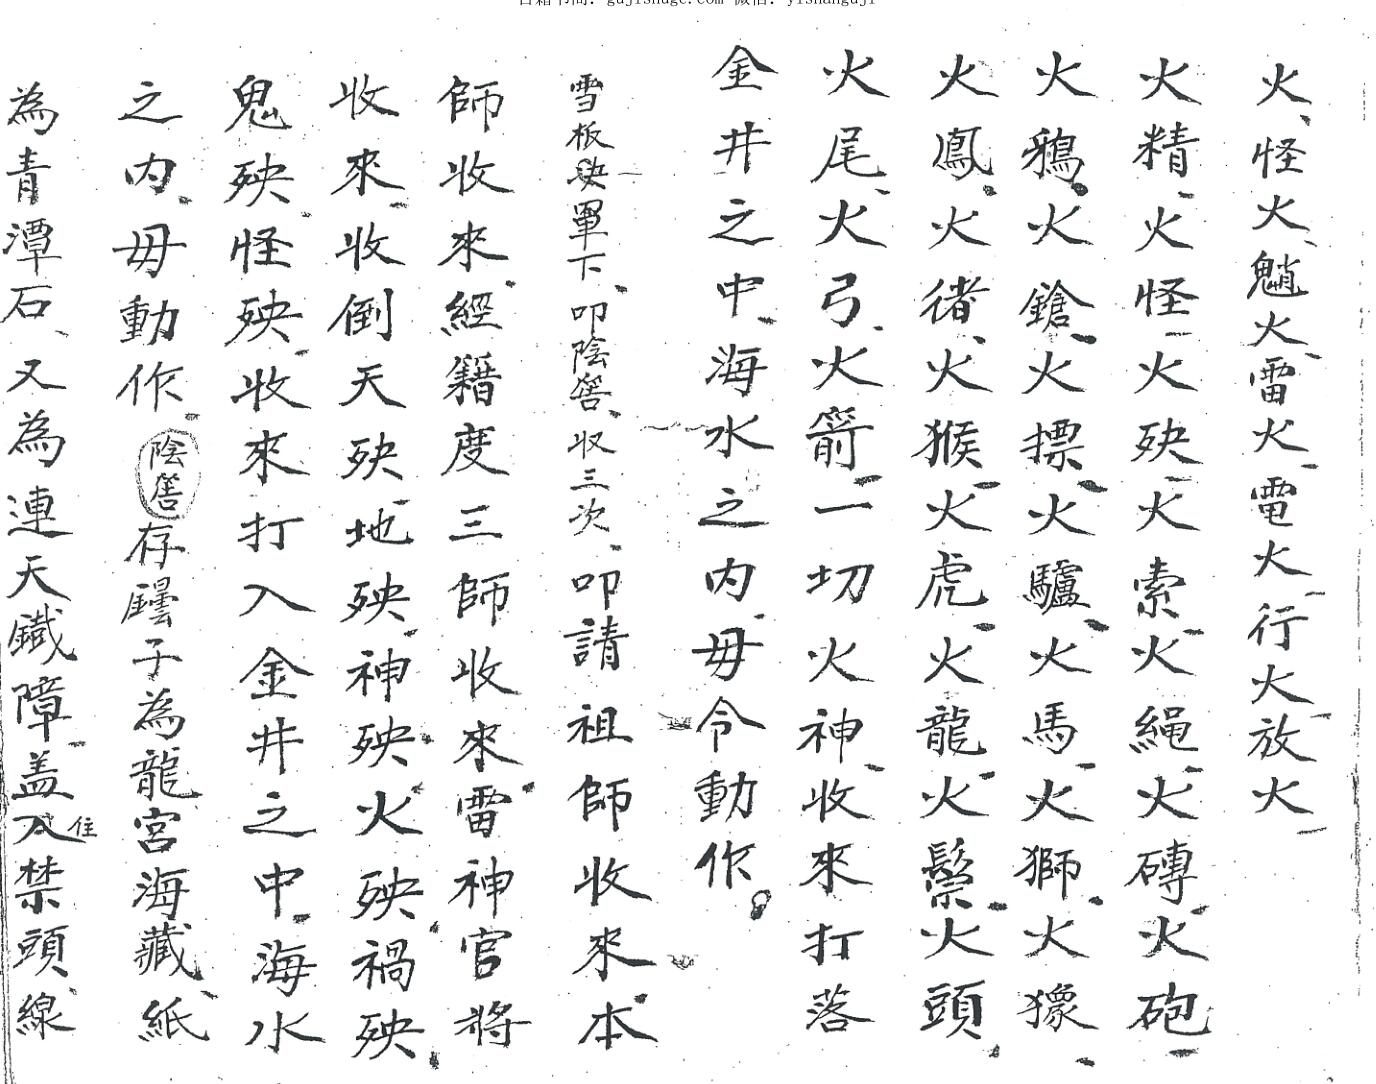 火怪火魈火雷火電火行火放火
火精火怪火殃火索火繩火磚火砲
火鴉火鎗火摽火驢火馬火獅火㺄
火鳳火猪火猴火虎火龍火鬃火頭
火尾火弓火箭一切火神收來打落
金井之中海水之内毋令動作
雪板殃軍下叩陰筶收三次叩請祖師收來本
師收來經籍度三師收來雷神官將
收來收倒天殃地殃神殃火殃禍殃
鬼殃怪殃收來打入金井之中海水
之内毋動作陰筶存子為龍宮海藏紙
為青潭石又為連天鐵障盖入住禁頭線